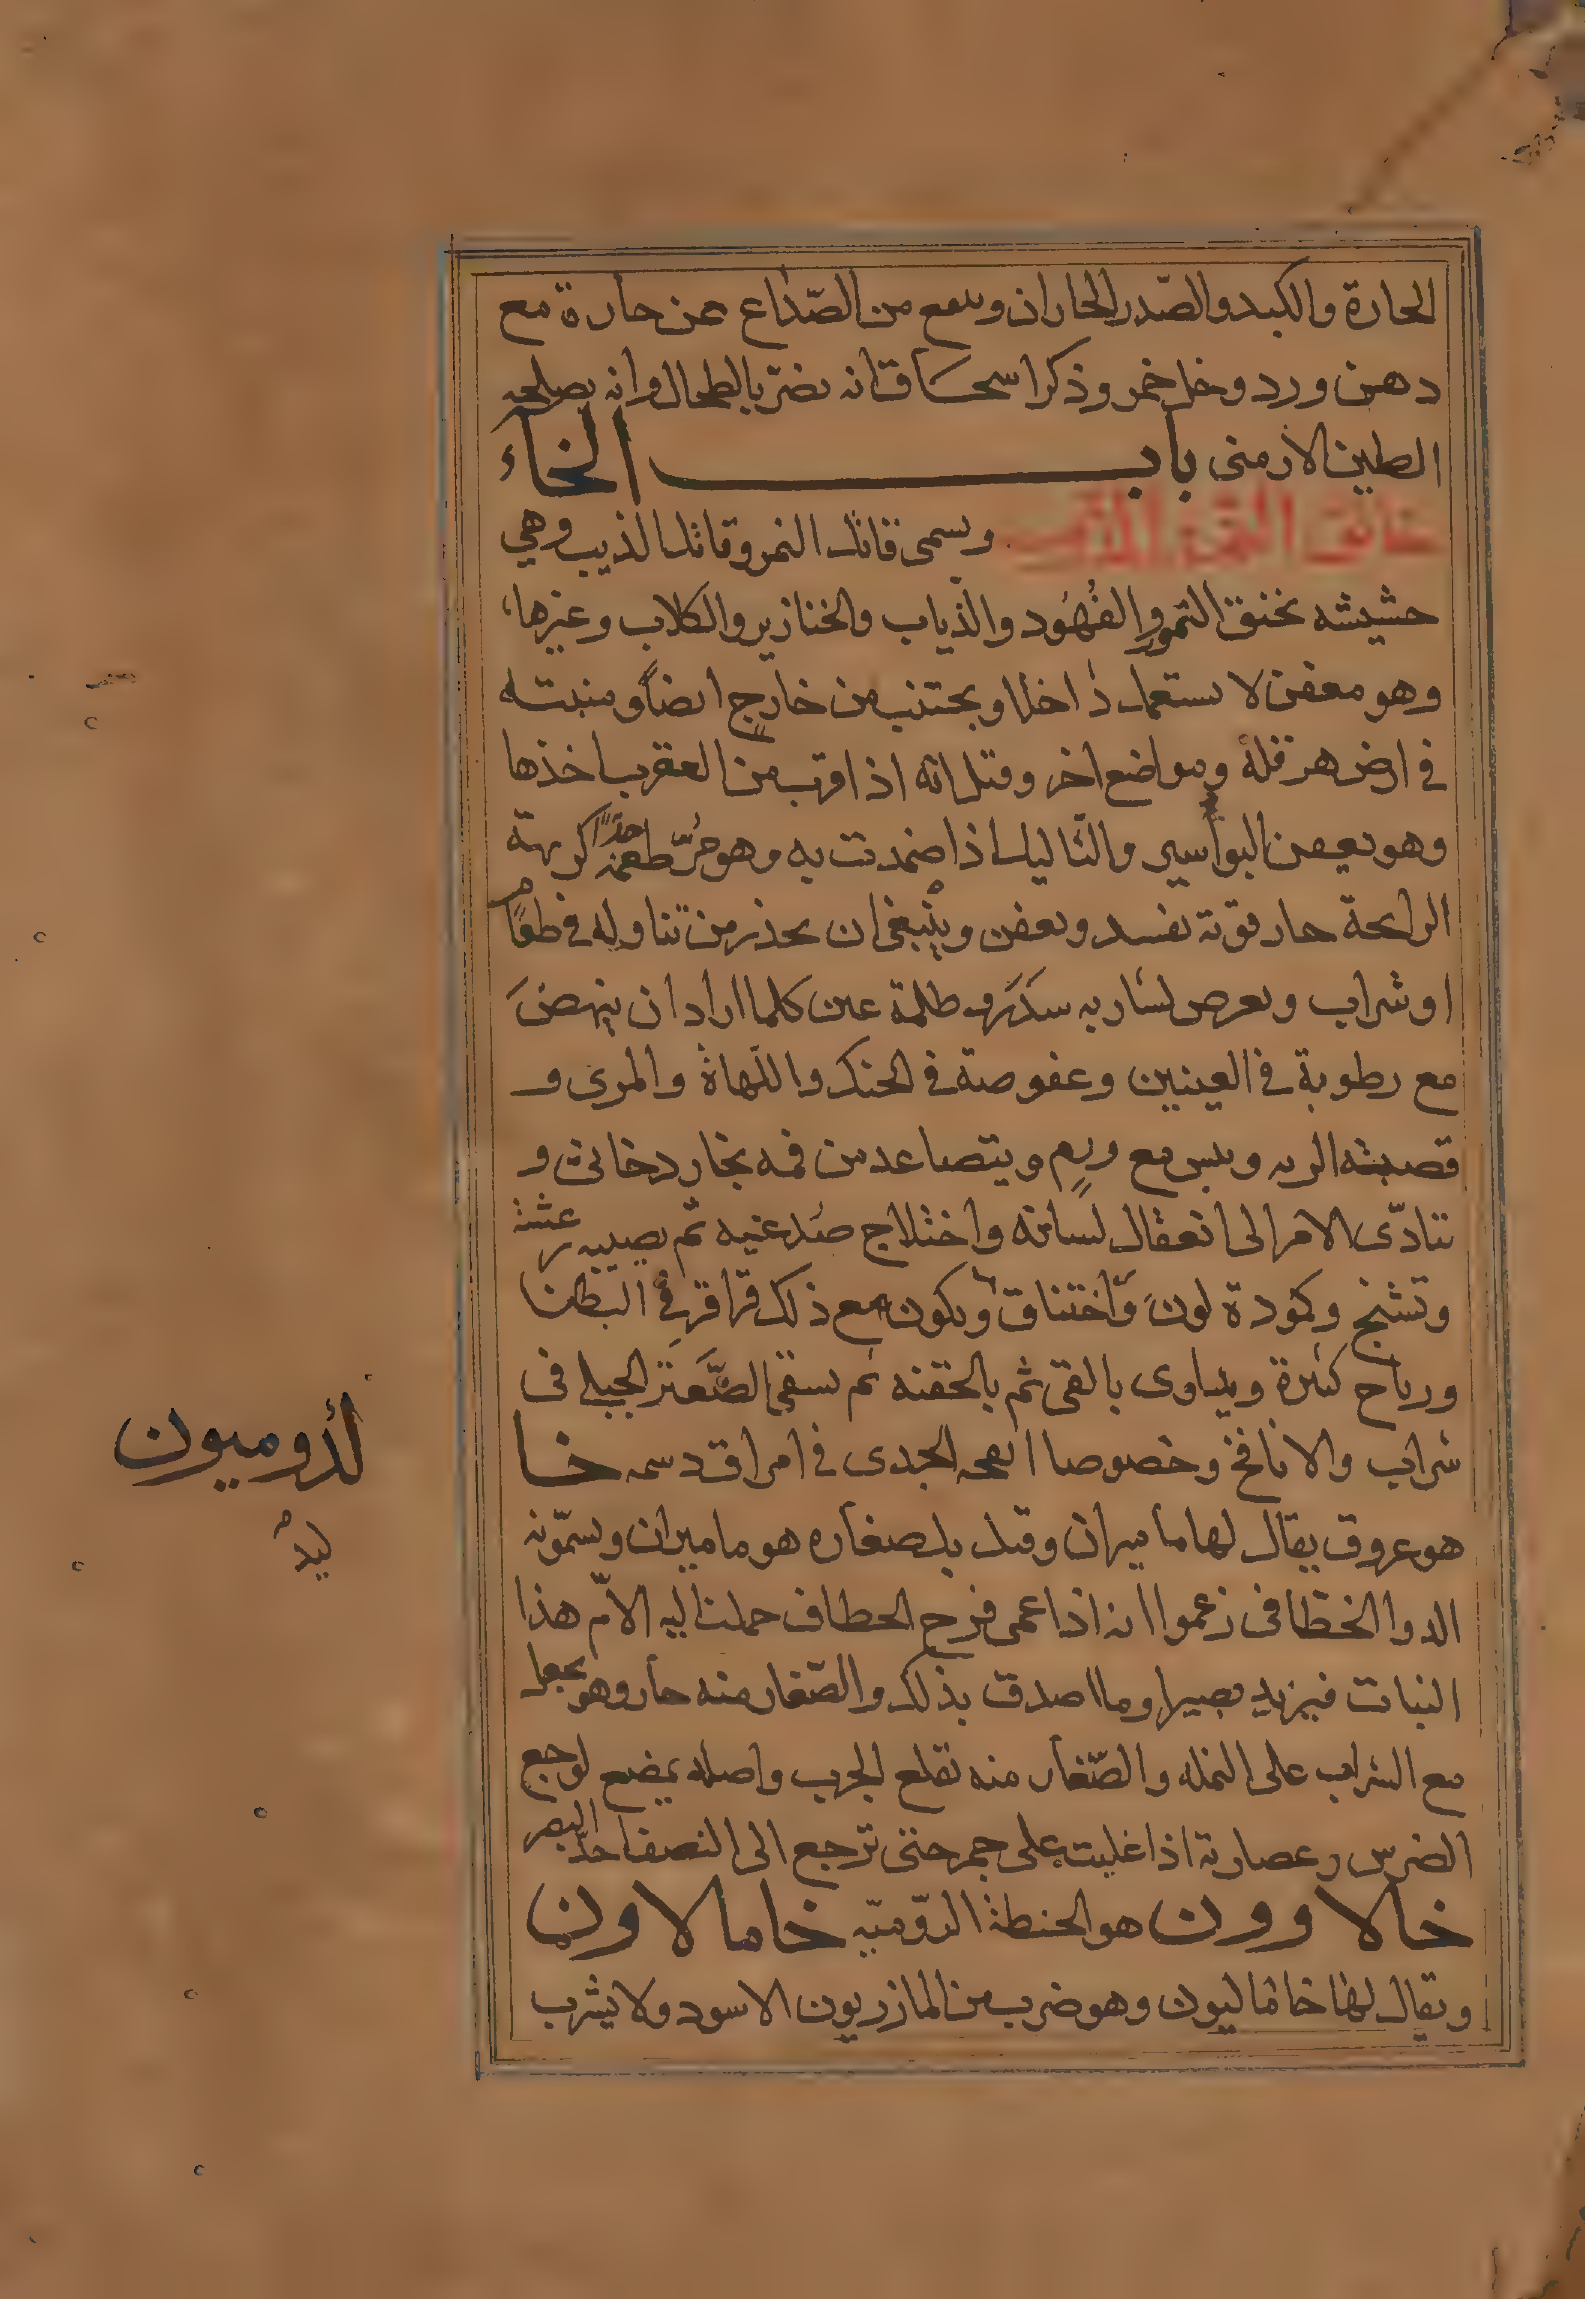 الحارة والكبد والصّدر الحاران وينفع من الصّداع عن حارة مع
دهن ورد وخل خمر وذكر اسحاق انه يضر بالطحال وانه يصلحه
الطين الارمنى باب الخاء
خانق النمر الذئب ويسمى قاتل النمر وقاتل الذيب وهي
حشيشه تخنق النمور والفُهُود والذّياب والخنازير والكلاب وغيرها
وهو معفن لا يستعمل داخلا ويجتنب من خارجٍ ايضاً ومنبته
في ارض هرقلة ومواضع اخر وقيل انه اذا قرب من العقرب اخذها
وهو يعفن البواسير والثاليل اذا ضمدت به وهو مُرّ طعمه جدّاً كريهة
الرايحة حار قوته تفسد وتعفن وينبغى ان يحذر من تناوله في طعام
او شراب ويعرض لشاربه سدَر وظلمة عين كلما اراد ان ينهضَ
مع رطوبة في العينين وعفوصة في الحنك واللّهاة والمرى و
قصبته الريه ويبس مع ورم ويتصاعد من فمه بخار دخانى و
يتادّى الامر الى انعقال لسانه واختلاج صُدغيه ثم يصيبه رعشة
وتشنج وكمودة لون واختناق ويكون مع ذلك قراقر في البطن
ورياح كثيرة ويداوى بالقى ثم بالحقنه ثم يسقى الصَّعتر الجبلي فى
شراب والانافخ وخصوصا انفحه الجدى في امراق دسمه خا
لدوميون
ليدم
هو عروق يقال لها ماميران وقيل بل صغاره هو ماميران ويسمّونه
الدوا الخطافى زعموا انه اذا عمى فرخ الخطاف حملت اليه الامّ هذا
النبات فيرتد بصيرا وما اصدق بذلك والصّغار منه حار وهو يجعل
مع الشراب على النمله والصّغار منه تقلع الجرب واصله يمضغ لوجع
الضرس وعصارته اذا غليت على جمر حتى ترجع الى النصف احدّ البصر
خالاوون هو الحنطة الرّوميّه خامالاون
ويقال لها خاماليون وهو ضرب من المازريون الاسود ولا يشرب